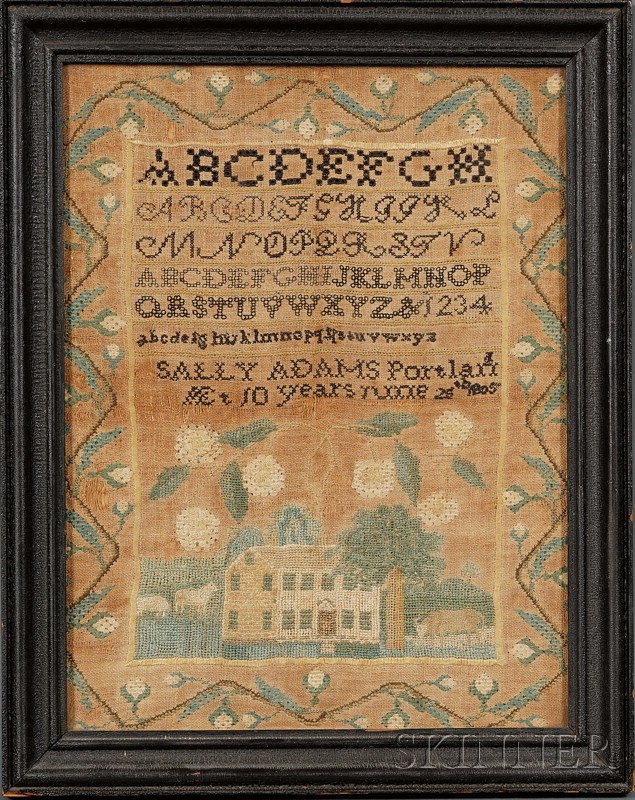 ABCDEFGH
ABCDEFGHIJKL
MNOPQRSTV
ABCDEFGHIJKLMNOP
QRSTUVWXYZ&1234
abcdefghiklmnopqrstuvwxyz
SALLY ADAMS Portland
Æt 10 years June 28th 1805
SKINNER